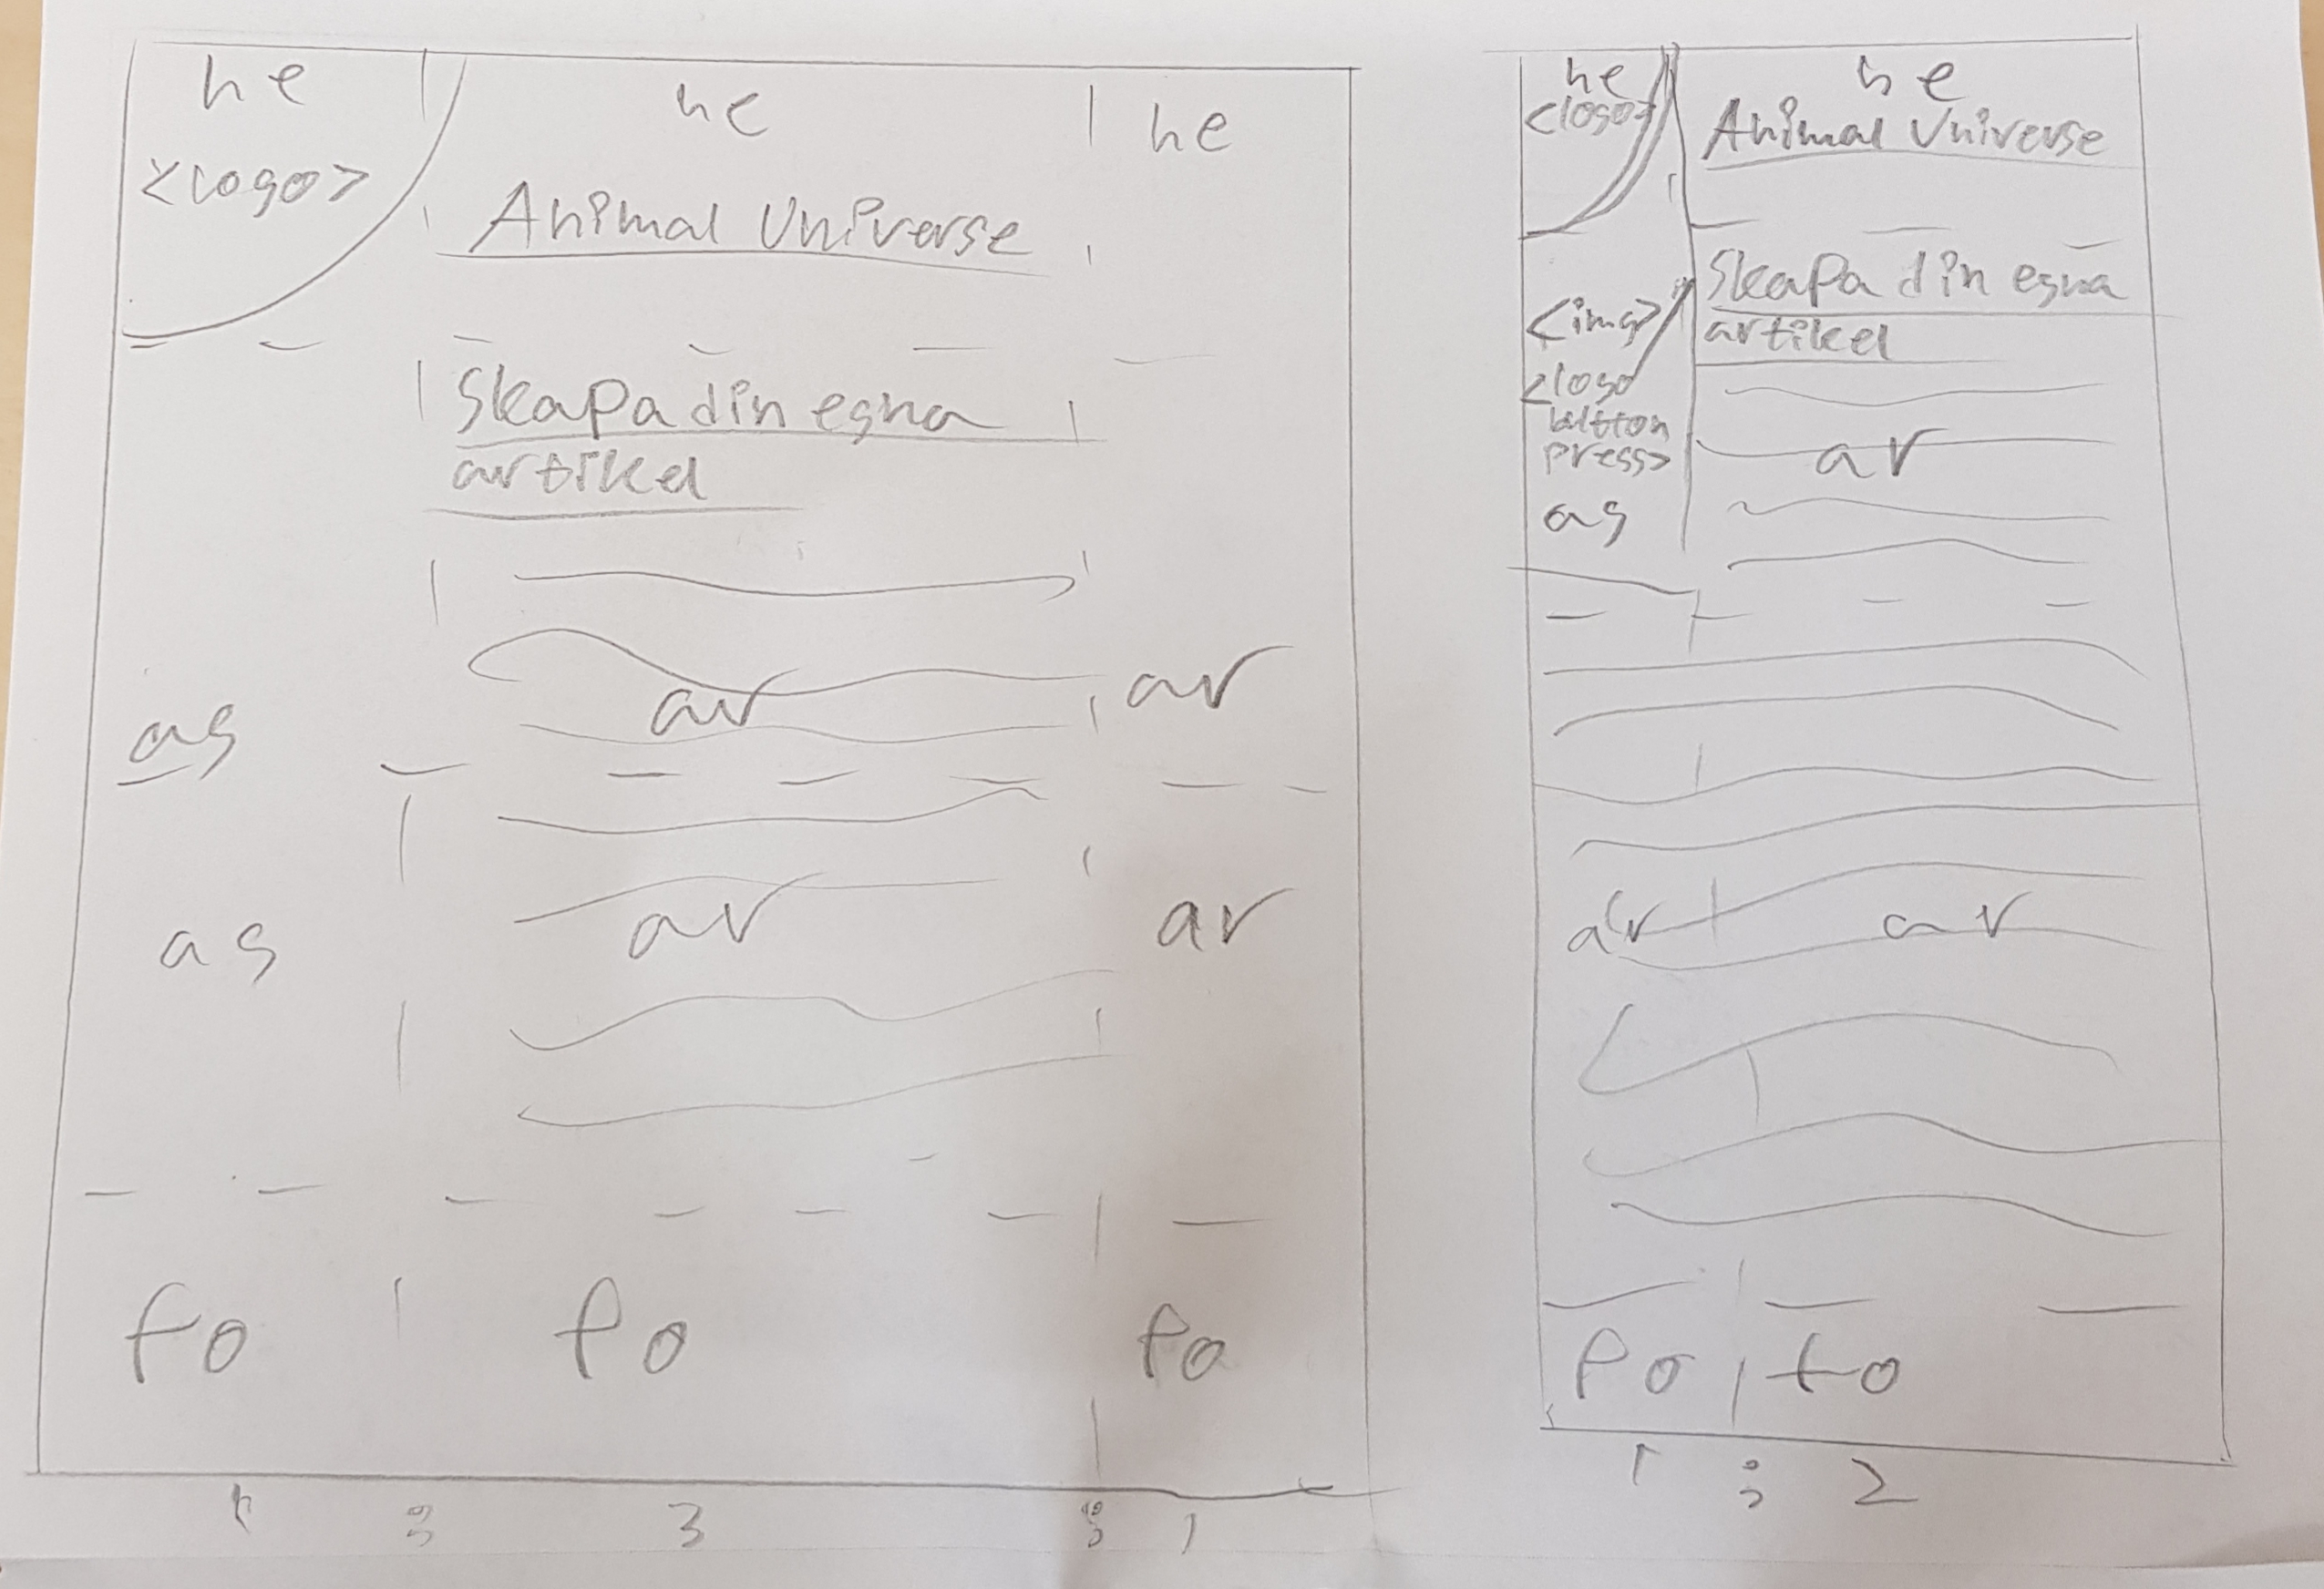 he he he
<logo>
Animal Universe
Skapa din egna
artikel
as ar ar
as ar ar
fo fo fo
1 ; 3 ; 1
he he
<logo>
Animal Universe
Skapa din egna
artikel
<img>
<logo
button
press>
ar
as
ar ar
fo fo
1 ; 2